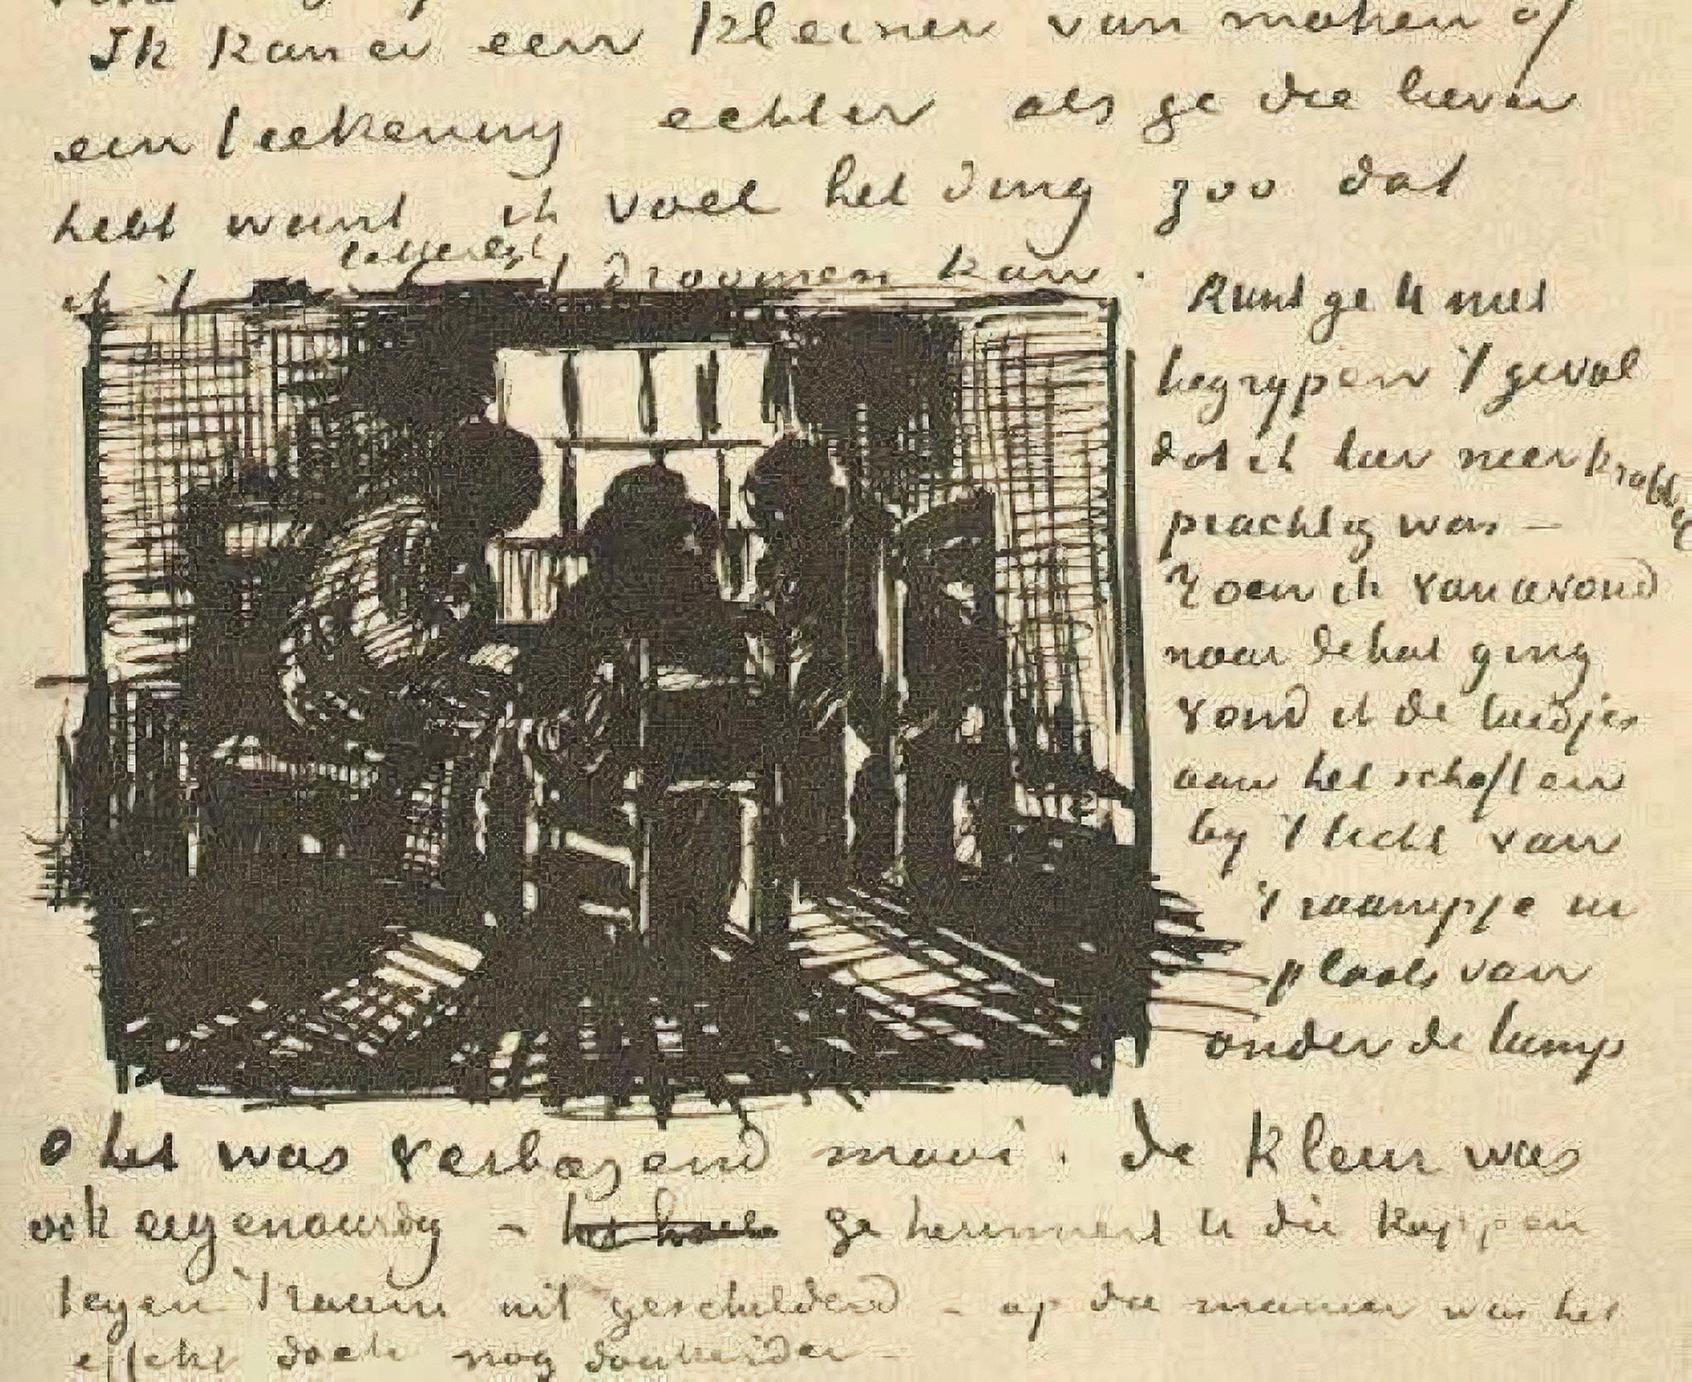 Ik kan er een kleiner van maken of
een teekening echter als ge die liever
hebt want ik voel het ding zoo dat
letterlijk
ik 't droomen kan.
Kunt ge U niet
begrypen 't geval
dat ik hier neerkrabbel
prachtig was —
Toen ik van avond
naar de hut ging
vond ik de luidjes
aan het schoften
by 't licht van
't raampje in
plaats van
onder de lamp
o het was verbazend mooi. de kleur was
ook eigenaardig – ge herinnert U die koppen
tegen 't raam uit geschilderd – op die manier was het
effekt doch nog donkerder –